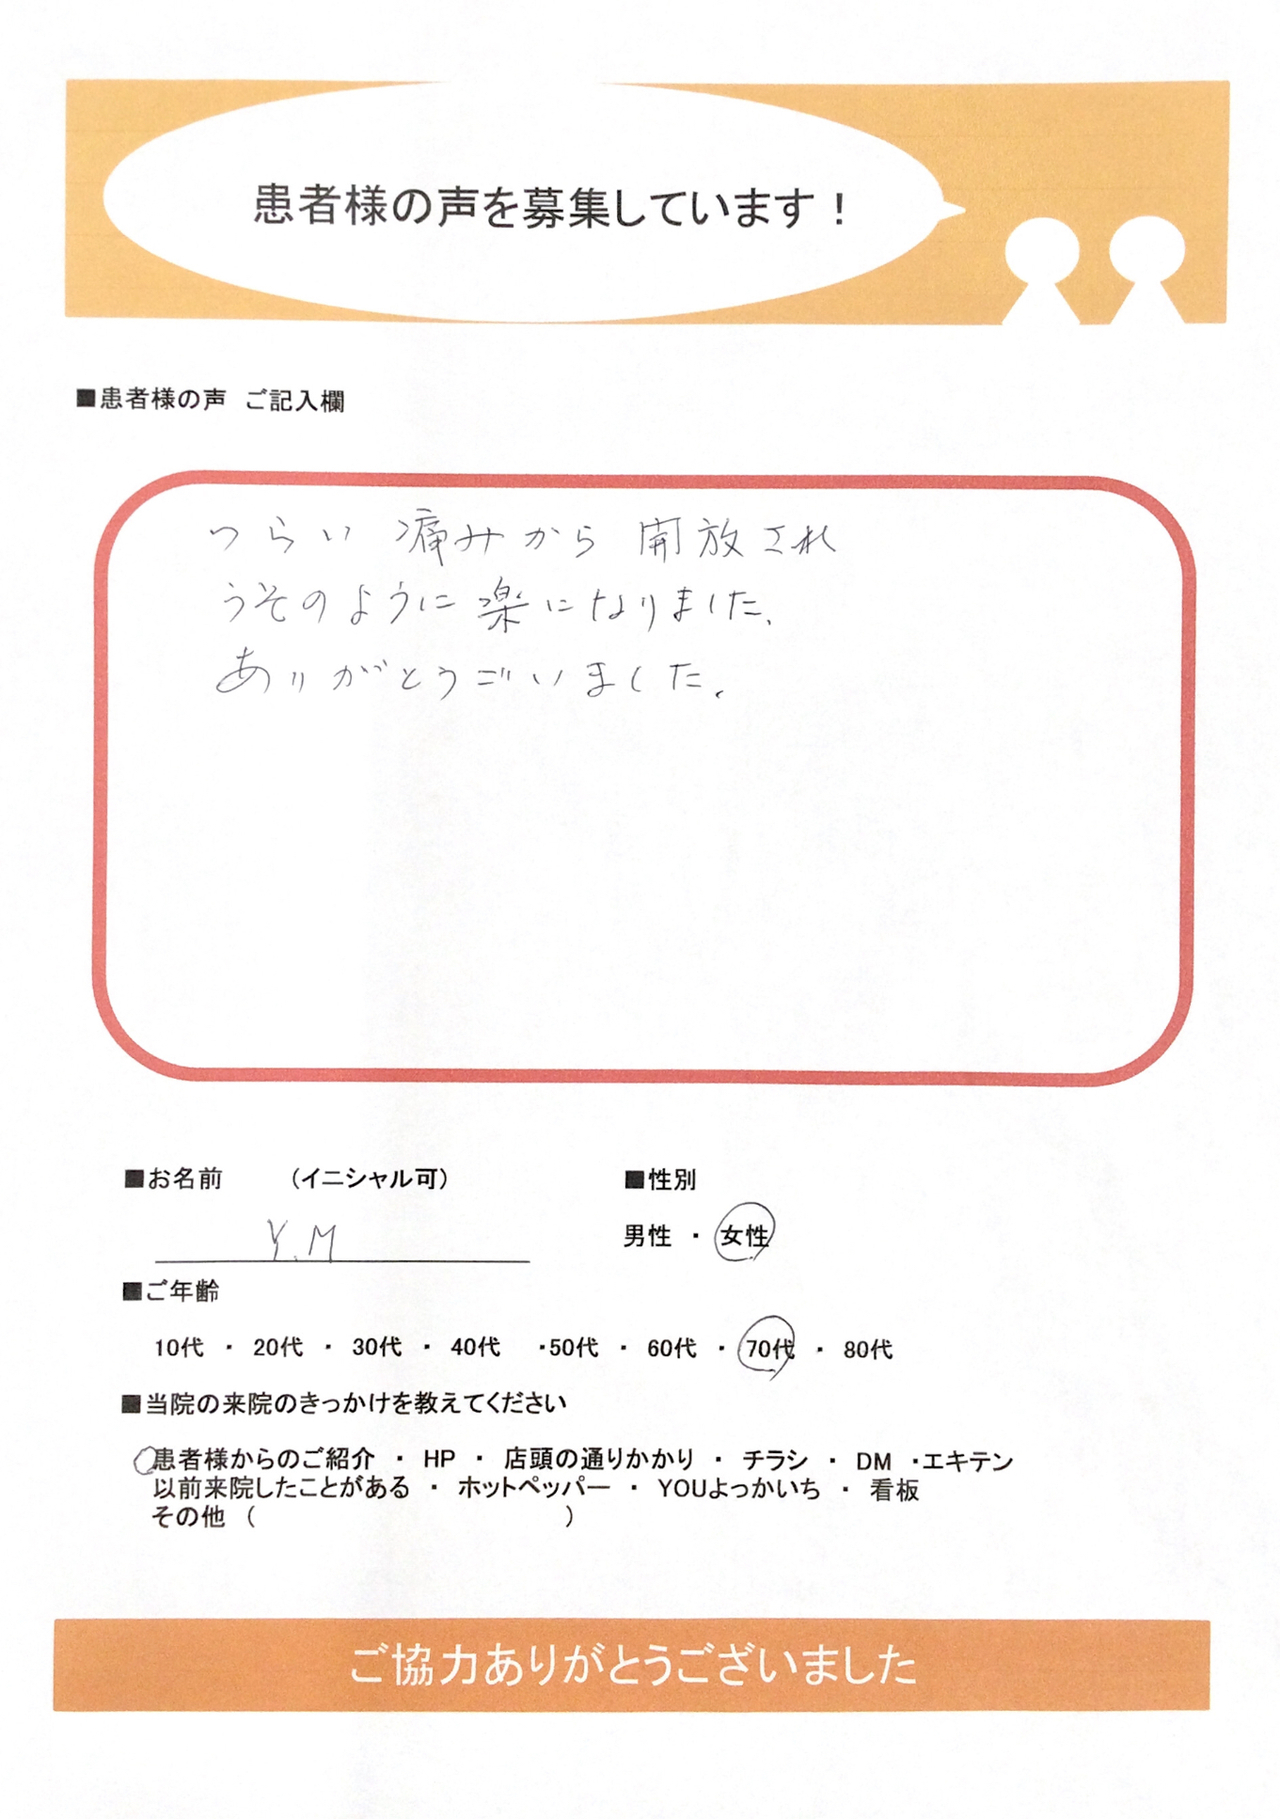 患者様の声を募集しています！
■患者様の声 ご記入欄
つらい 痛みから 開放され
うそのように楽になりました.
ありがとうごいました.
■お名前 （イニシャル可）
■性別
Y.M
男性 ・ 女性
■ご年齢
10代 ・ 20代 ・ 30代 ・ 40代 ・50代 ・ 60代 ・ 70代 ・ 80代
■当院の来院のきっかけを教えてください
患者様からのご紹介 ・ HP ・ 店頭の通りかかり ・ チラシ ・ DM ・エキテン
以前来院したことがある ・ ホットペッパー ・ YOUよっかいち ・ 看板
その他 （ ）
ご協力ありがとうございました